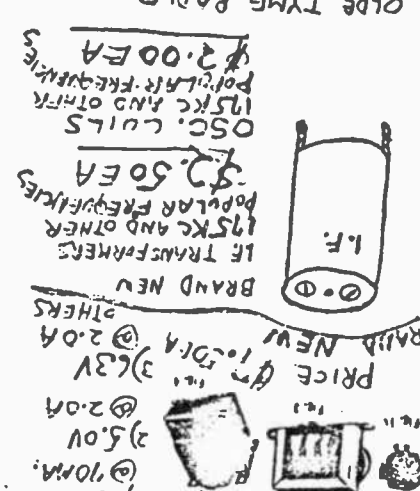 @ 70 MA.
2) 5.0V
@ 2.0A
3) 6.3V
@ 2.0A
OTHERS
PRICE
NEW!
BRAND NEW
I.F. TRANSFORMERS
175 KC AND OTHER
POPULAR FREQUENCIES
$2.50 EA
I.F.
OSC. COILS
175 KC AND OTHER
POPULAR FREQUENCIES
$2.00 EA
OLDE TYME RADIO